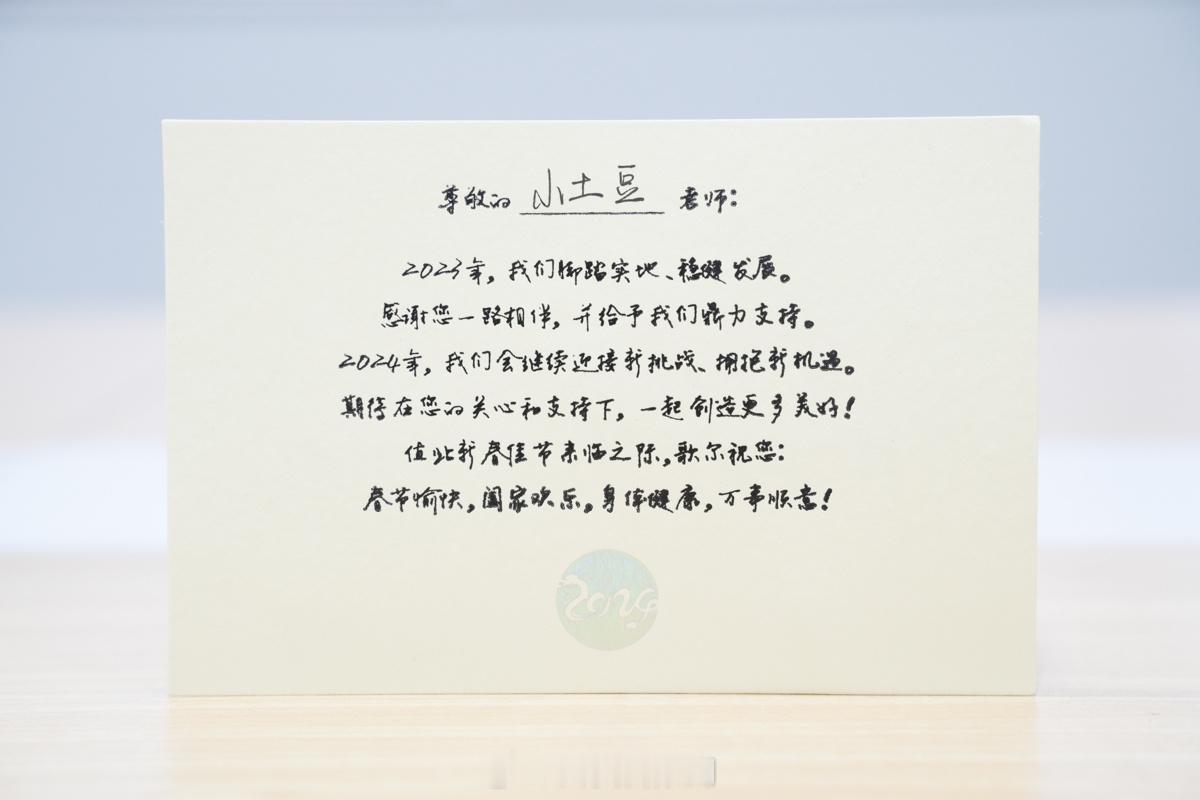 尊敬的 小土豆 老师：
2023年，我们脚踏实地、稳健发展。
感谢您一路相伴，并给予我们鼎力支持。
2024年，我们会继续迎接新挑战、拥抱新机遇。
期待在您的关心和支持下，一起创造更多美好！
值此新春佳节来临之际，歌尔祝您：
春节愉快，阖家欢乐，身体健康，万事顺意！
2024